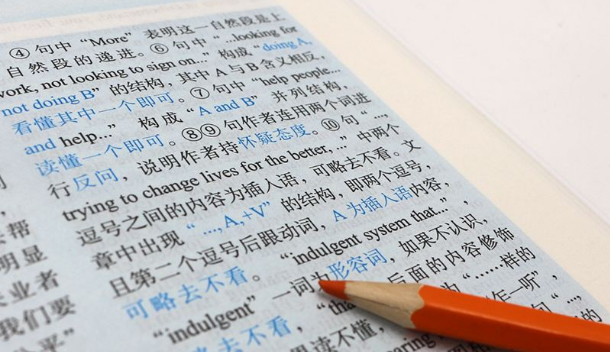 ④句中 “More” 表明这一自然段是上
自然段的递进。⑥句中 “...looking for
work, not looking to sign on...” 构成 “doing A,
not doing B” 的结构, 其中 A 与 B 含义相反,
看懂其中一个即可。⑦句中 “help people...
and help..” 构成 “A and B” 并列结构,
读懂一个即可。⑧⑨句作者连用两个词进
行反问, 说明作者持怀疑态度。⑩句 “...,
trying to change lives for the better, ...” 中两个
逗号之间的内容为插入语, 可略去不看。文
章中出现 “ ...,A,+V” 的结构, 即两个逗号,
且第二个逗号后跟动词, A 为插入语内容,
可略去不看。 “indulgent system that...” ,
“indulgent” 一词为形容词, 如果不认识,
略去不看, 后面的内容修饰
果读不懂,
为 “……样的
乍一听” ,
句 “...,
帮
明显
业者
我们要
平”